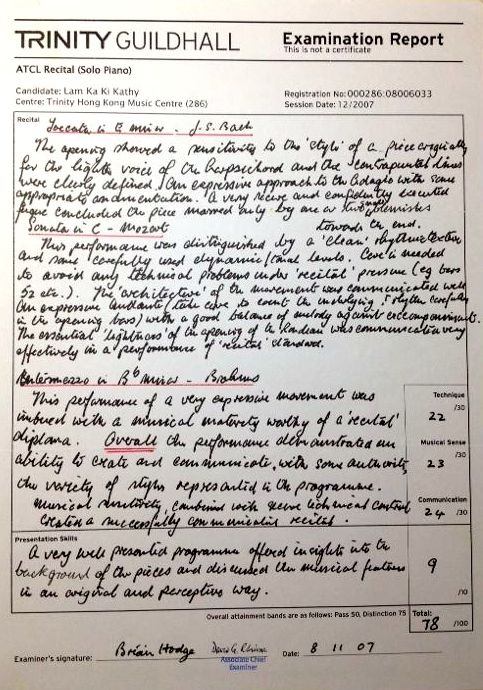 TRINITY GUILDHALL
Examination Report
This is not a certificate
ATCL Recital (Solo Piano)
Candidate: Lam Ka Ki Kathy
Centre: Trinity Hong Kong Music Centre (286)
Registration No: 000286:08006033
Session Date: 12/2007
Recital
Toccata in E minor - J.S. Bach
The opening showed a sensitivity to the 'style' of a piece originally
for the lighter voice of the harpsichord and the contrapuntal lines
were clearly defined. An expressive approach to the Adagio with some
appropriate ornamentation. A very secure and confidently executed
fugue concluded the piece marred only by one or two small blemishes
towards the end.
Sonata in C - Mozart
This performance was distinguished by a 'clean' rhythmic texture
and some carefully used dynamic/tonal levels. Care is needed
to avoid any technical problems under 'recital' pressure (eg bars
52 etc.). The 'architecture' of the movement was communicated well.
An expressive Andante (take care to count the underlying rhythm carefully
in the opening bars) with a good balance of melody against accompaniment.
The essential 'lightness' of the opening of the Rondeau was communicated very
effectively in a performance of 'recital' standard.
Intermezzo in Bb minor - Brahms
This performance of a very expressive movement was
imbued with a musical maturity worthy of a 'recital'
diploma. Overall the performance demonstrated an
ability to create and communicate, with some authority,
the variety of styles represented in the programme.
Musical sensitivity, combined with secure technical control
created a successfully communicated recital.
Technique
22 /30
Musical Sense
23 /30
Communication
24 /30
Presentation Skills
A very well presented programme offered insights into the
background of the pieces and discussed the musical features
in an original and perceptive way.
9 /10
Overall attainment bands are as follows: Pass 50, Distinction 75
Total:
78 /100
Examiner's signature: Brian Hodge
Associate Chief
Examiner
Date: 8 11 07